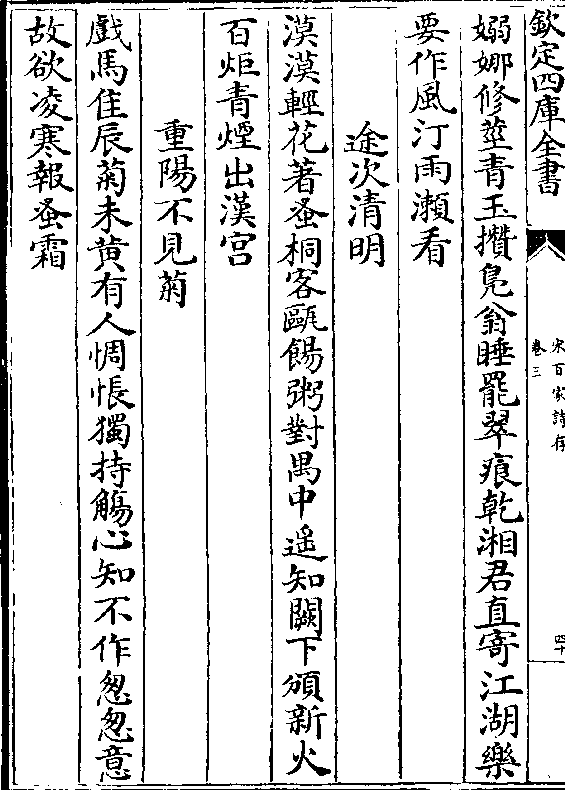 欽定四庫全書
宋百家詩存
卷三
四十
嫋娜修莖青玉攢鳧翁睡罷翠痕乾湘君直寄江湖樂
要作風汀雨瀬看
途次清明
漠漠輕花著蚤桐客甌餳粥對禺中遥知闕下頒新火
百炬青煙出漢宫
重陽不見菊
戲馬佳辰菊未黄有人惆悵獨持觴心知不作怱怱意
故欲凌寒報蚤霜